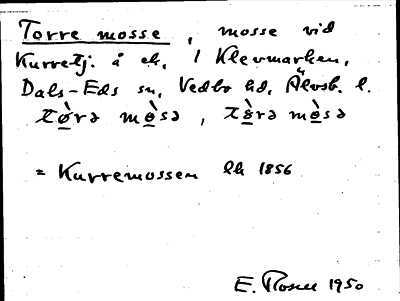 Torre mosse, mosse vid
Kurretj. å ek. 1 Klevmarken,
Dals-Eds sn, Vedbo hd, Älvsb. l.
tø̀rə mo̊̀sə, tò̤rə mo̊̀sə
= Kurremossen Ek 1856
E. Rosell 1950